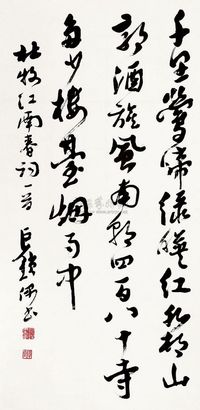 千里莺啼绿映红水村山
郭酒旗风南朝四百八十寺
多少楼台烟雨中
杜牧江南春词一首